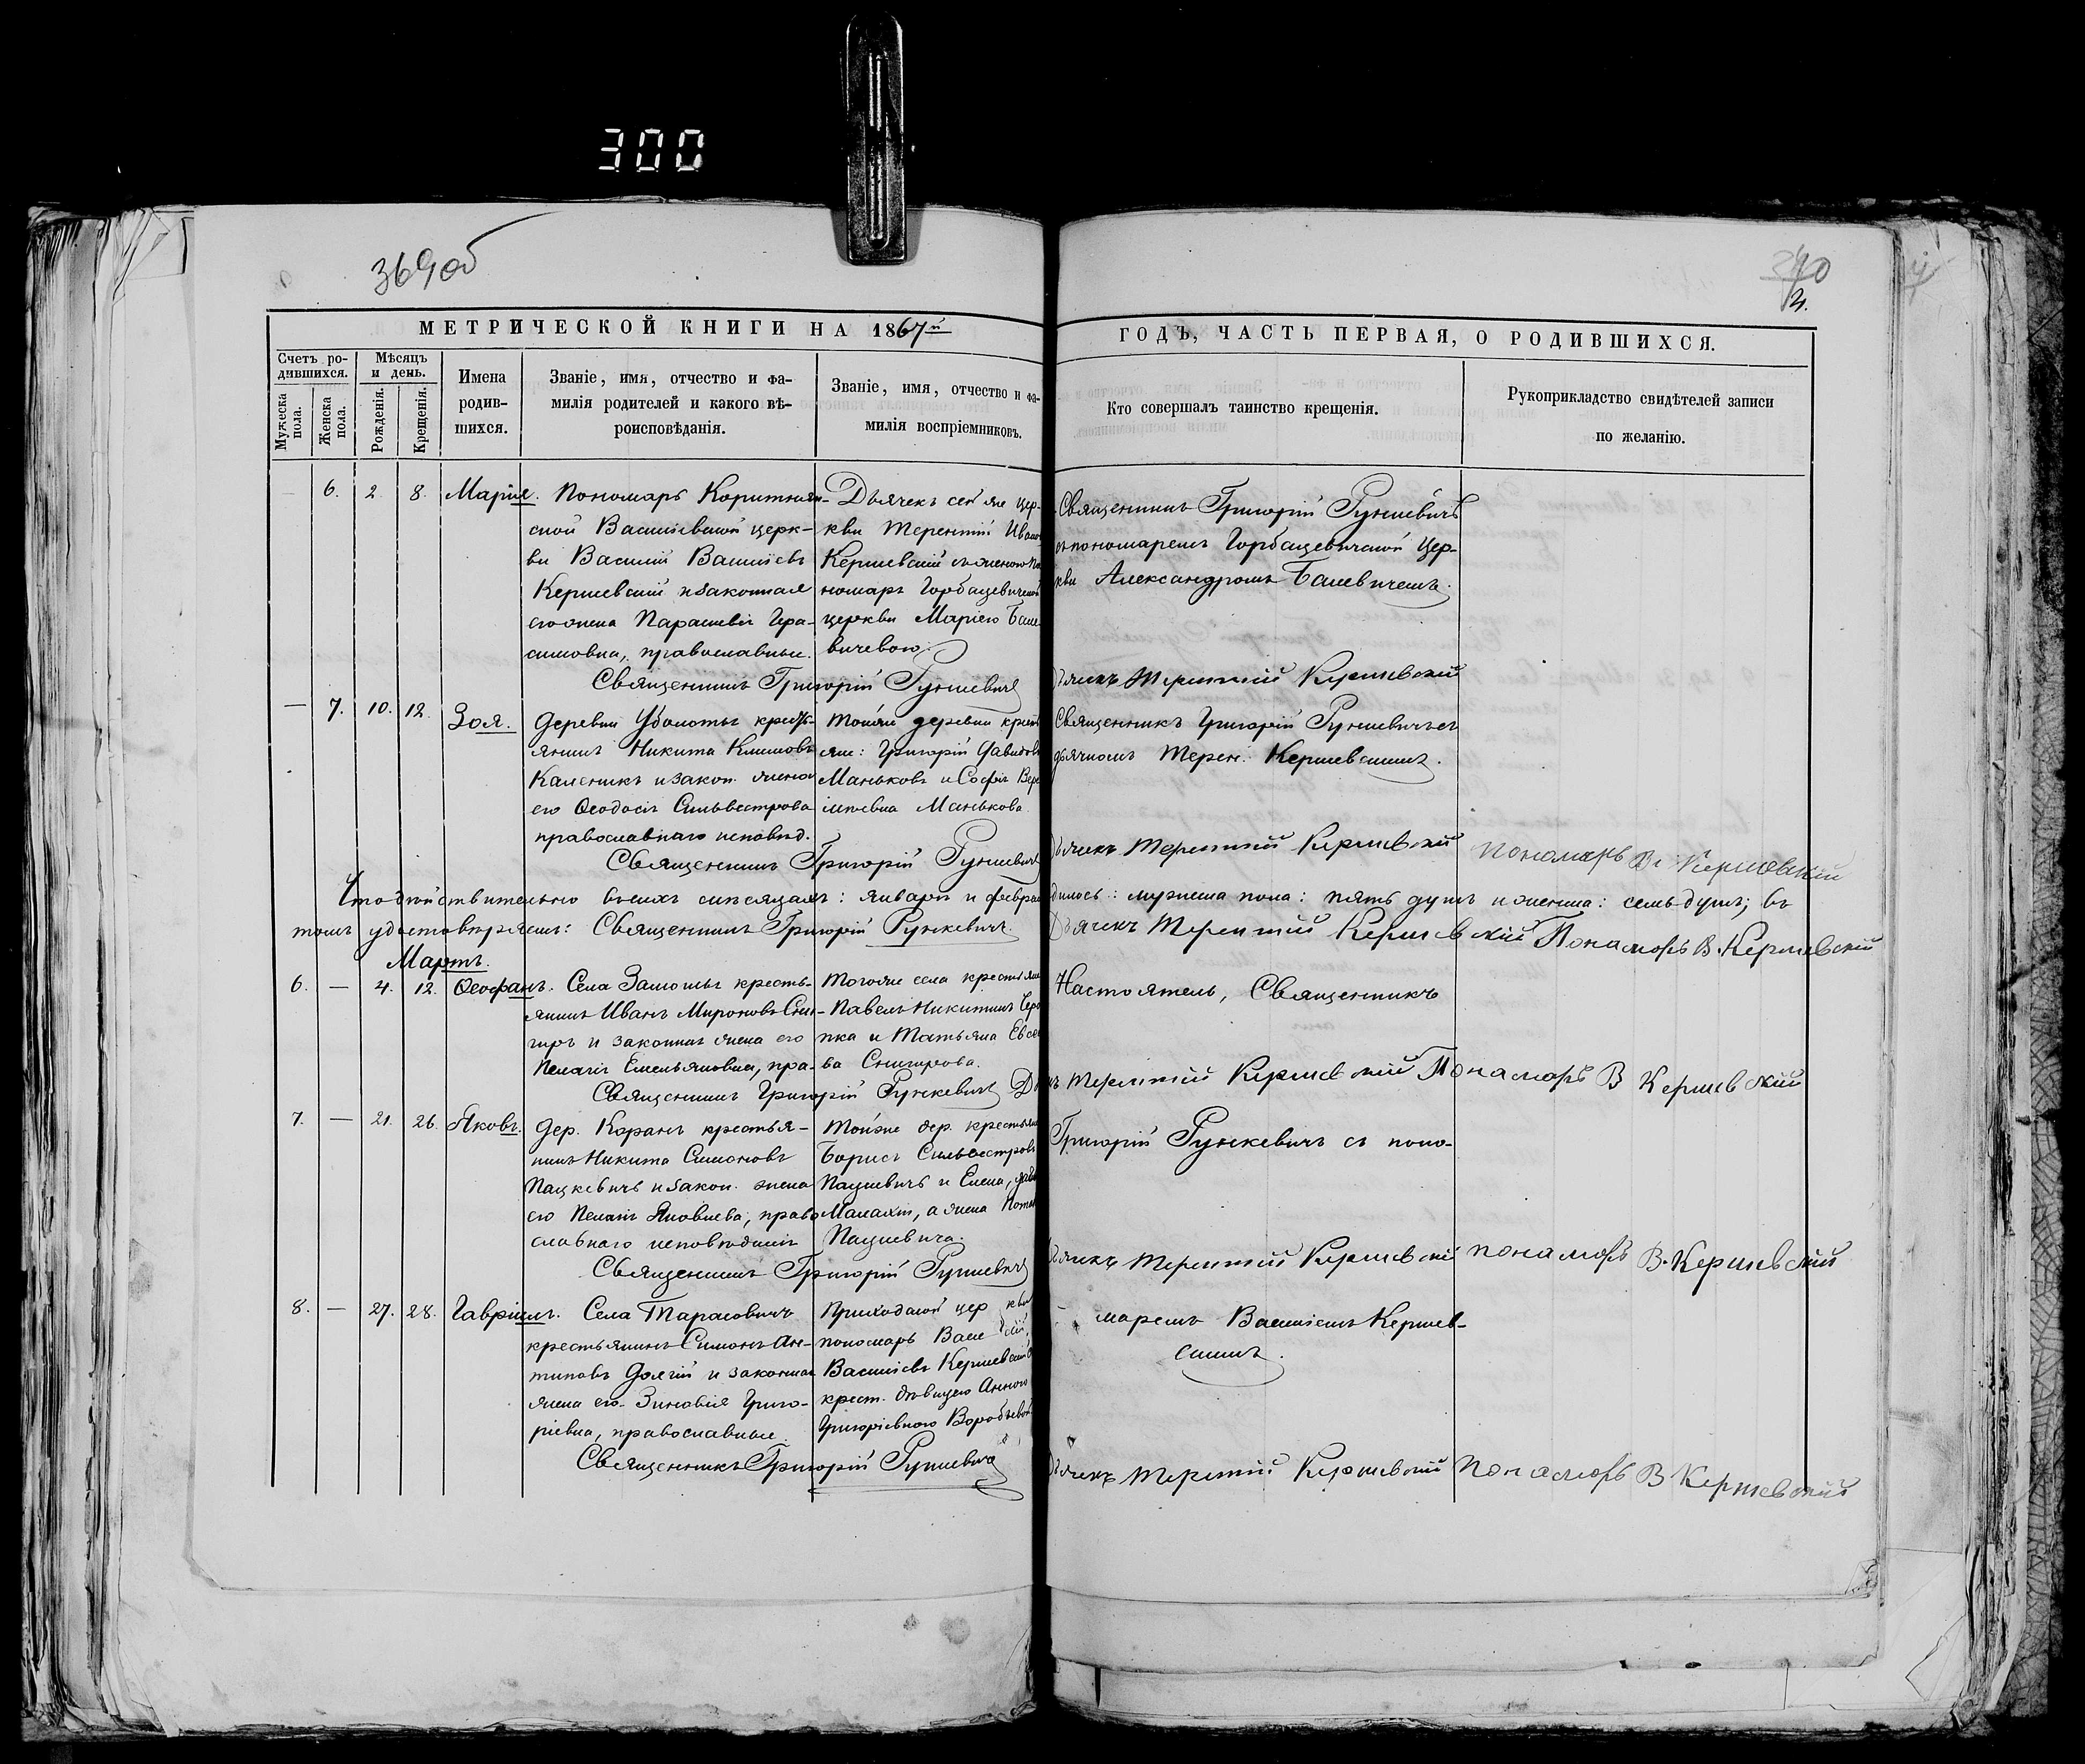 300
369 об
370
3.
МЕТРИЧЕСКОЙ КНИГИ НА 1867й
ГОДЪ, ЧАСТЬ ПЕРВАЯ, О РОДИВШИХСЯ.
Счетъ ро-
дившихся.
Мужеска
пола.
Женска
пола.
Мѣсяцъ
и день.
Рожденія.
Крещенія.
Имена
родив-
шихся.
Званіе, имя, отчество и фа-
милія родителей и какого вѣ-
роисповѣданія.
Званіе, имя, отчество и фа-
милія воспріемниковъ.
Кто совершалъ таинство крещенія.
Рукоприкладство свидѣтелей записи
по желанію.
— 6. 2 8. Марія.
Пономарь
ской Васильевской церк-
ви Василій Васильевъ
Кершевскій и законная
его жена Параскева Гера-
симовна, православные.
Дьячекъ сей же цер-
кви Терентій Ивано
Кершевскій съ женою по
номаря Горбацевичской
церкви Маріею Бале
вичевою.
Священникъ Григорій Рункевичъ
съ пономаремъ Горбацевичской Цер-
кви Александромъ Балевичемъ.
Священникъ Григорій Рункевичъ
Дьячекъ Терентій Кершевскій
— 7. 10. 12. Зоя.
Деревни Уболотье кресть-
янинъ Никита Климовъ
Каленикъ и закон. жена
его Ѳеодосія Сильвестрова
православнаго исповѣд.
Тойже деревни крест
яне: Григорій Давидовъ
Маньковъ и Софія
Манькова
Священникъ Григорій Рункевичъ съ
дьячкомъ Терен. Кершевскимъ.
Священникъ Григорій Рункевичъ
Дьячекъ Терентій Кершевскій Пономарь В. Кершевскій
Что дѣйствительно въ сихъ мѣсяцахъ: январѣ и феврал
дилось: мужеска пола: пять душъ и женска: семь душъ; въ
томъ удостовѣряемъ: Священникъ Григорій Рункевичъ.
Дьячекъ Терентій Кершевскій Понамарь В. Кершевскій
Мартъ.
6. — 4. 12. Ѳеофанъ.
Села Замошья кресть-
янинъ Иванъ Мироновъ Сни-
гирь и законная жена его
Пелагія Емельяновна, пра-
Тогоже села крестьяне
Павелъ Никитинъ Чере
пка и Татьяна Евсе
ва Снигирова.
Настоятель, Священникъ
Священникъ Григорій Рункевичъ
Терентій Кершевскій Понамарь В Кершевскій
7. — 21. 26. Яковъ.
Дер. Коранъ крестья-
нинъ Никита Симоновъ
Пацкевичъ и закон. жена
его Пелагія Яковлева, право
славнаго исповѣданія
Тойже дер. крестьяне
Борисъ Сильвестровъ
Пацкевичъ и Елена,
Малахія, а жена
Пацкевича.
Григорій Рункевичъ съ поно-
Священникъ Григорій Рункевичъ
Дьячекъ Терентій Кершевскій Понамарь В. Кершевскій
8. — 27. 28. Гавріилъ.
Села Тарасовичъ
крестьянинъ Симонъ Ан-
типовъ Долгій и законная
жена его Зиновія Григо-
ріевна, православные.
Приходской церкви
пономарь Василій
Васильевъ Кершевскій
крест. дѣвицею Анною
Григоріевною Воробьевой
маремъ Василіемъ Кершев-
скимъ.
Священникъ Григорій Рункевичъ
Дьячекъ Терентій Кершевскій Понамарь В Кершевскій